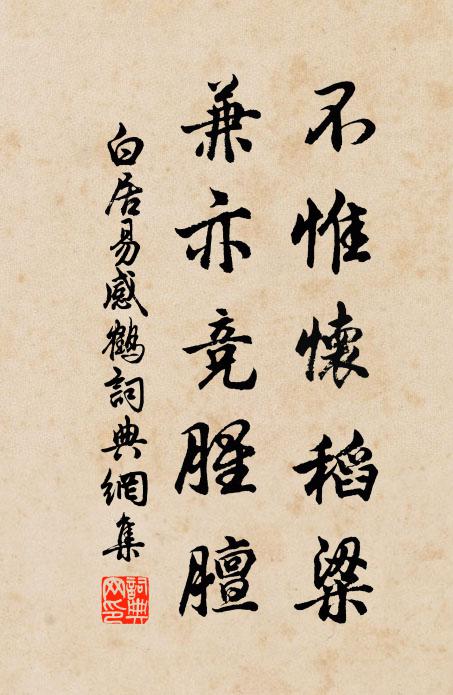 不惟懷稻粱
兼亦競腥膻
白居易感鶴詞典網集
詞典網印